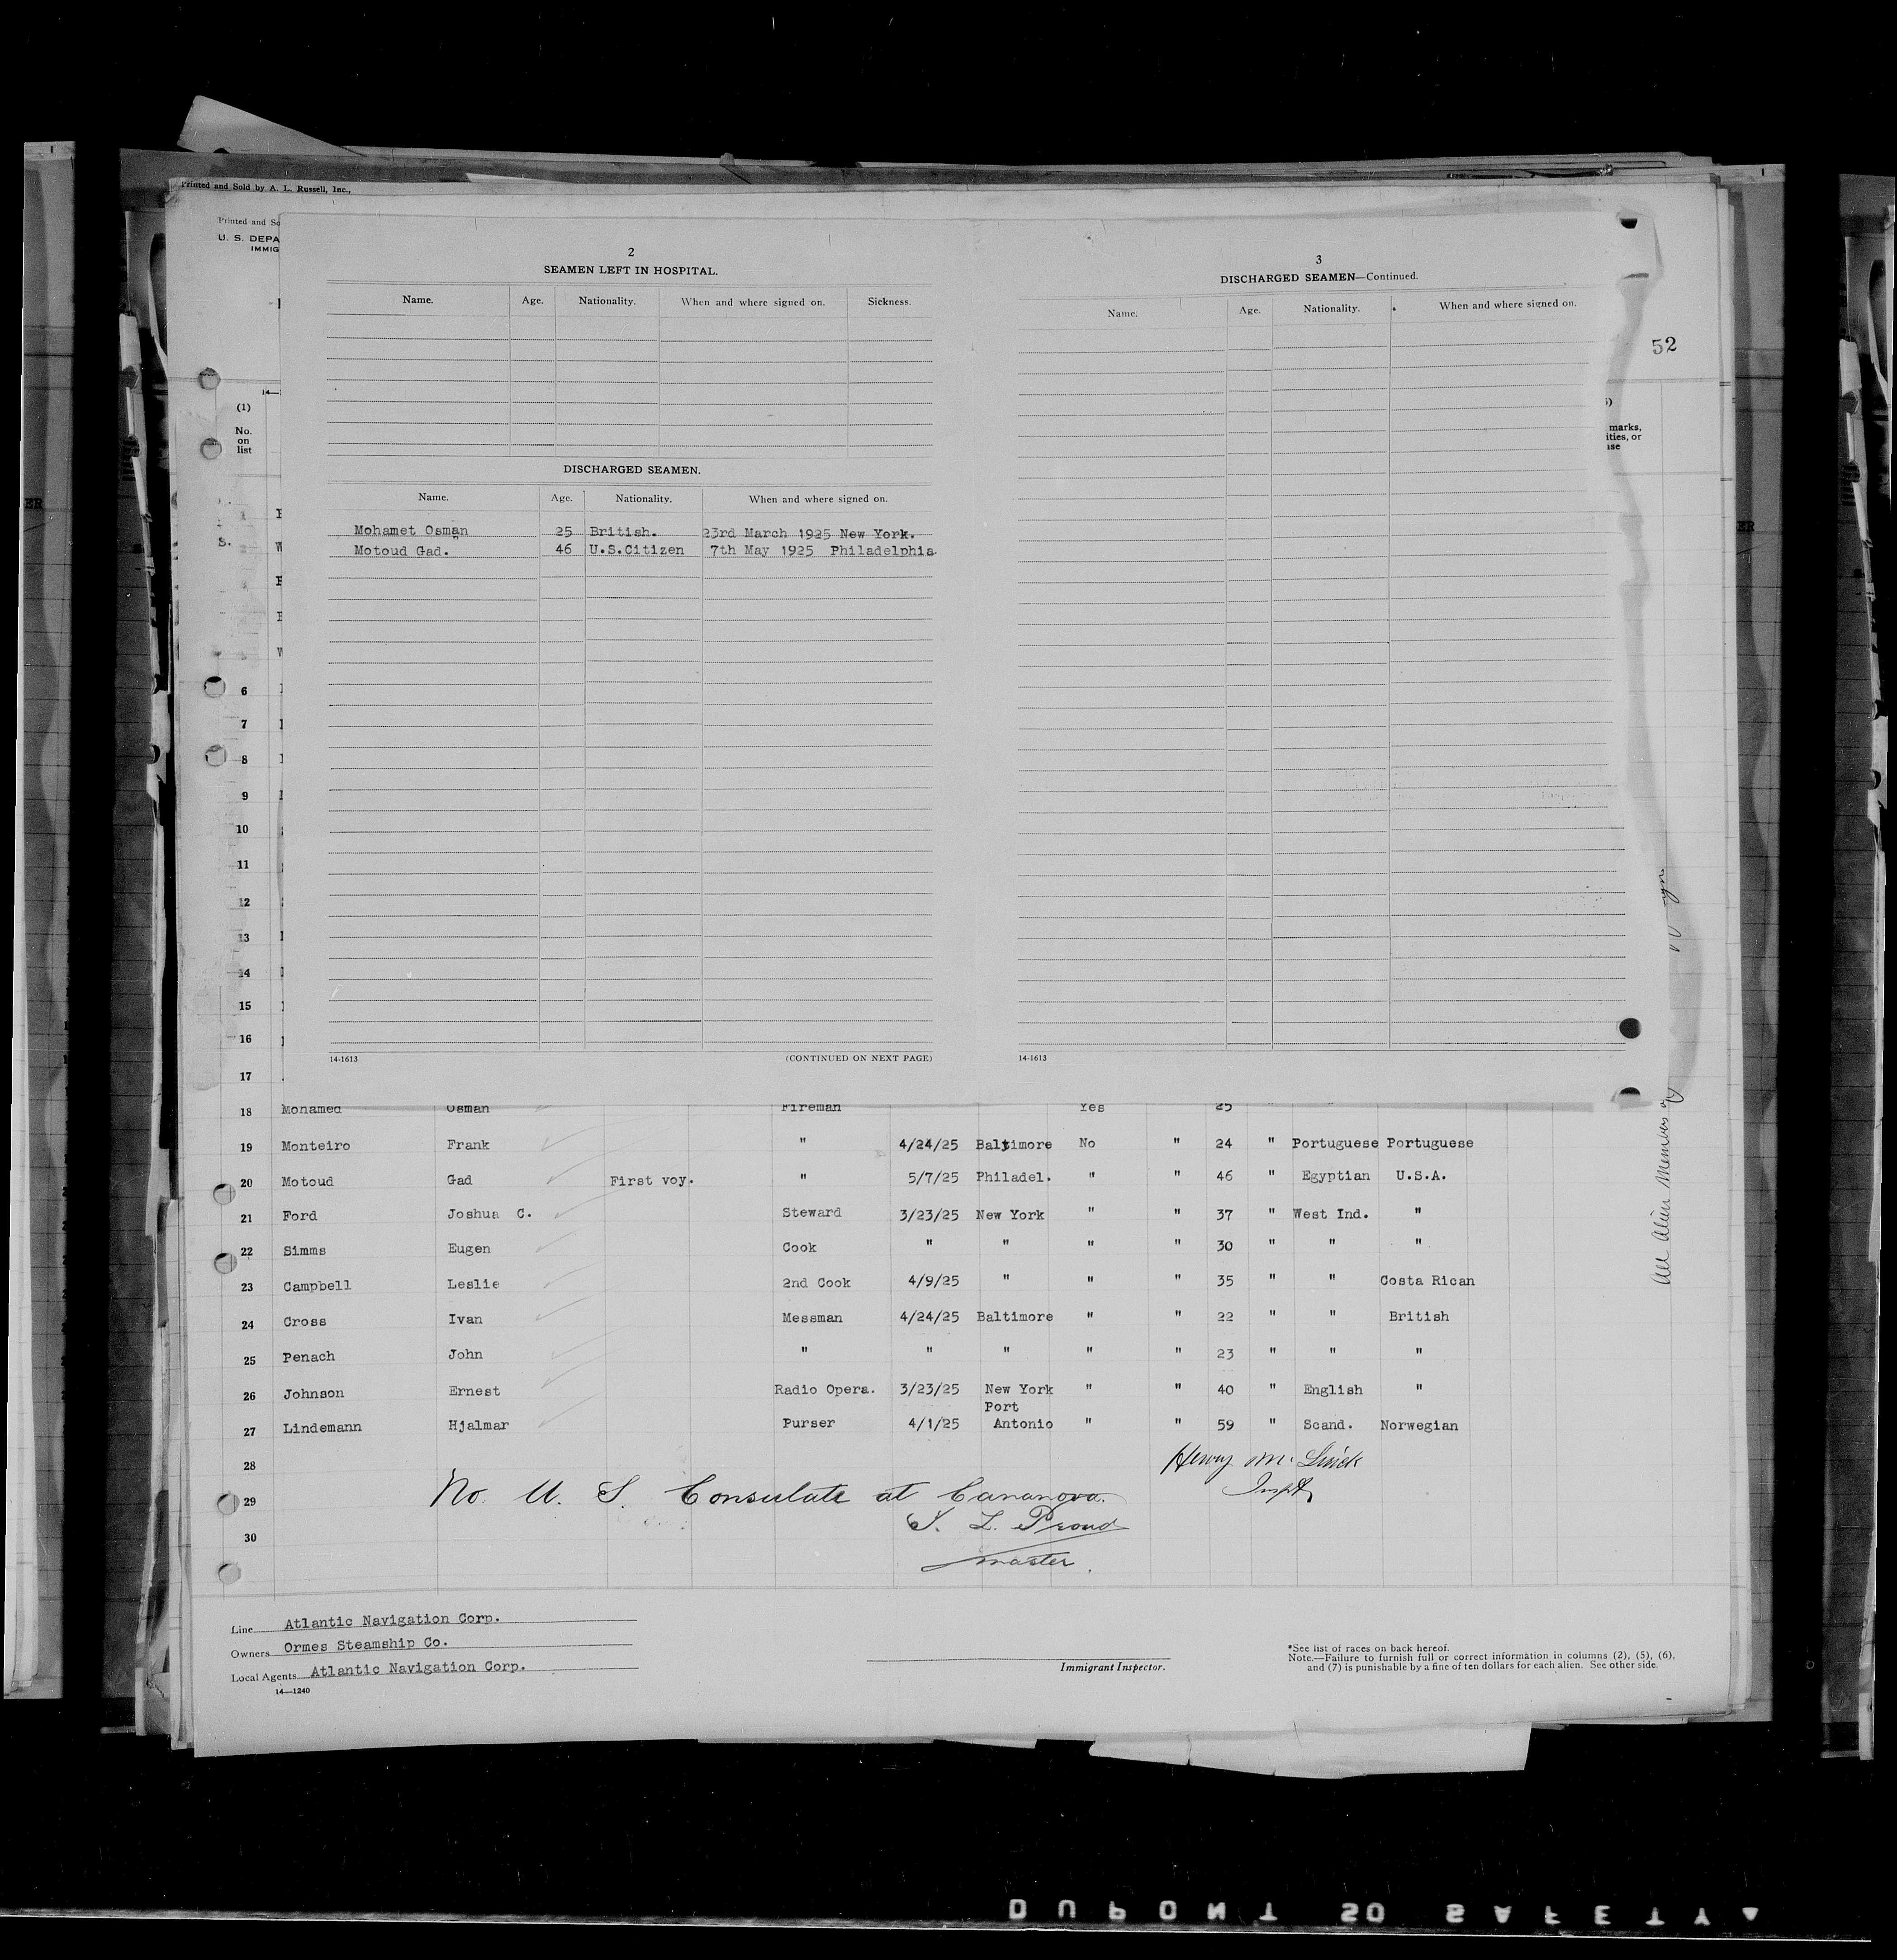 Printed and Sold by A. L. Russell, Inc.,
Printed and So
U. S. DEPA
IMMIG
52
(1)
No.
on
list
marks,
ities, or
ase
2
SEAMEN LEFT IN HOSPITAL.
Name. Age. Nationality. When and where signed on. Sickness.
DISCHARGED SEAMEN.
Name. Age. Nationality. When and where signed on.
Mohamet Osman 25 British. 23rd March 1925 New York.
Motoud Gad. 46 U.S.Citizen 7th May 1925 Philadelphia
14-1613 (CONTINUED ON NEXT PAGE)
3
DISCHARGED SEAMEN—Continued.
Name. Age. Nationality. When and where signed on.
14-1613
6
7
8
9
10
11
12
13
14
15
16
17
18 Mohamed Osman Fireman Yes 25
19 Monteiro Frank " 4/24/25 Baltimore No " 24 " Portuguese Portuguese
20 Motoud Gad First voy. " 5/7/25 Philadel. " " 46 " Egyptian U.S.A.
21 Ford Joshua C. Steward 3/23/25 New York " " 37 " West Ind. "
22 Simms Eugen Cook " " " " 30 " " "
23 Campbell Leslie 2nd Cook 4/9/25 " " " 35 " " Costa Rican
24 Cross Ivan Messman 4/24/25 Baltimore " " 22 " " British
25 Penach John " " " " " 23 " " "
26 Johnson Ernest Radio Opera. 3/23/25 New York " " 40 " English "
27 Lindemann Hjalmar Purser 4/1/25 Port Antonio " " 59 " Scand. Norwegian
28
29
30
Henry M.
Inspt
No. U. S. Consulate at Cananova.
L. Proud
master.
All Alien Members of
Line Atlantic Navigation Corp.
Owners Ormes Steamship Co.
Local Agents Atlantic Navigation Corp.
14—1240
Immigrant Inspector.
*See list of races on back hereof.
Note.—Failure to furnish full or correct information in columns (2), (5), (6),
and (7) is punishable by a fine of ten dollars for each alien. See other side.
DUPONT 50 SAFETY